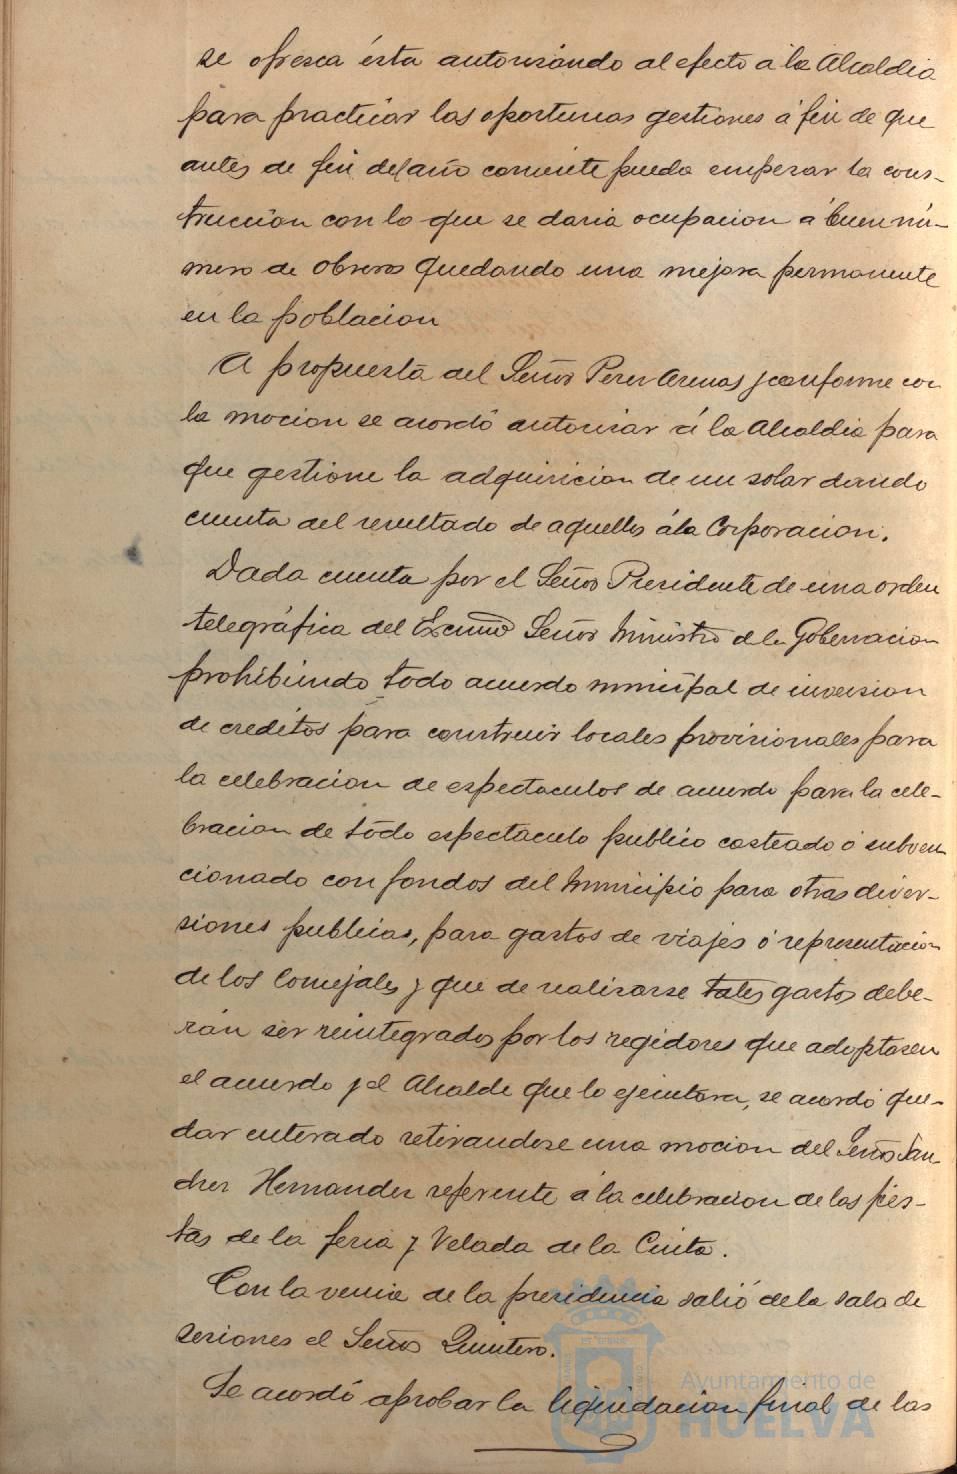 se ofresca ésta autorisando al efecto á la Alcaldia
para practicar las oportunas gestiones á fin de que
antes de fin del año corriente pueda empesar la cons-
truccion con lo que se daria ocupacion á buen nú-
mero de obreros quedando una mejora permanente
en la poblacion
A propuesta del Señor Perez Arenas y conforme con
la mocion se acordó autorisar á la Alcaldia para
que gestione la adquisicion de un solar dando
cuenta del resultado de aquellos á la Corporacion.
Dada cuenta por el Señor Presidente de una orden
telegráfica del Excmo Señor Ministro de la Gobernacion
prohibiendo todo acuerdo municipal de inversion
de creditos para construir locales provisionales para
la celebracion de espectaculos de acuerdo para la cele-
bracion de todo espectaculo publico costeado ó subven
cionado con fondos del Municipio para otras diver-
siones publicas, para gastos de viajes ó representacion
de los Concejales y que de realisarse tales gastos debe-
rán ser reintegrados por los regidores que adoptasen
el acuerdo y el Alcalde que lo ejecutara, se acordó que-
dar enterado retirandose una mocion del Señor San
chez Hernandez referente á la celebracion de las fies-
tas de la feria y Velada de la Cinta.
Con la venia de la presidencia salió de la sala de
sesiones el Señor Quintero.
Se acordó aprobar la liquidacion final de las
Ayuntamiento de
HUELVA